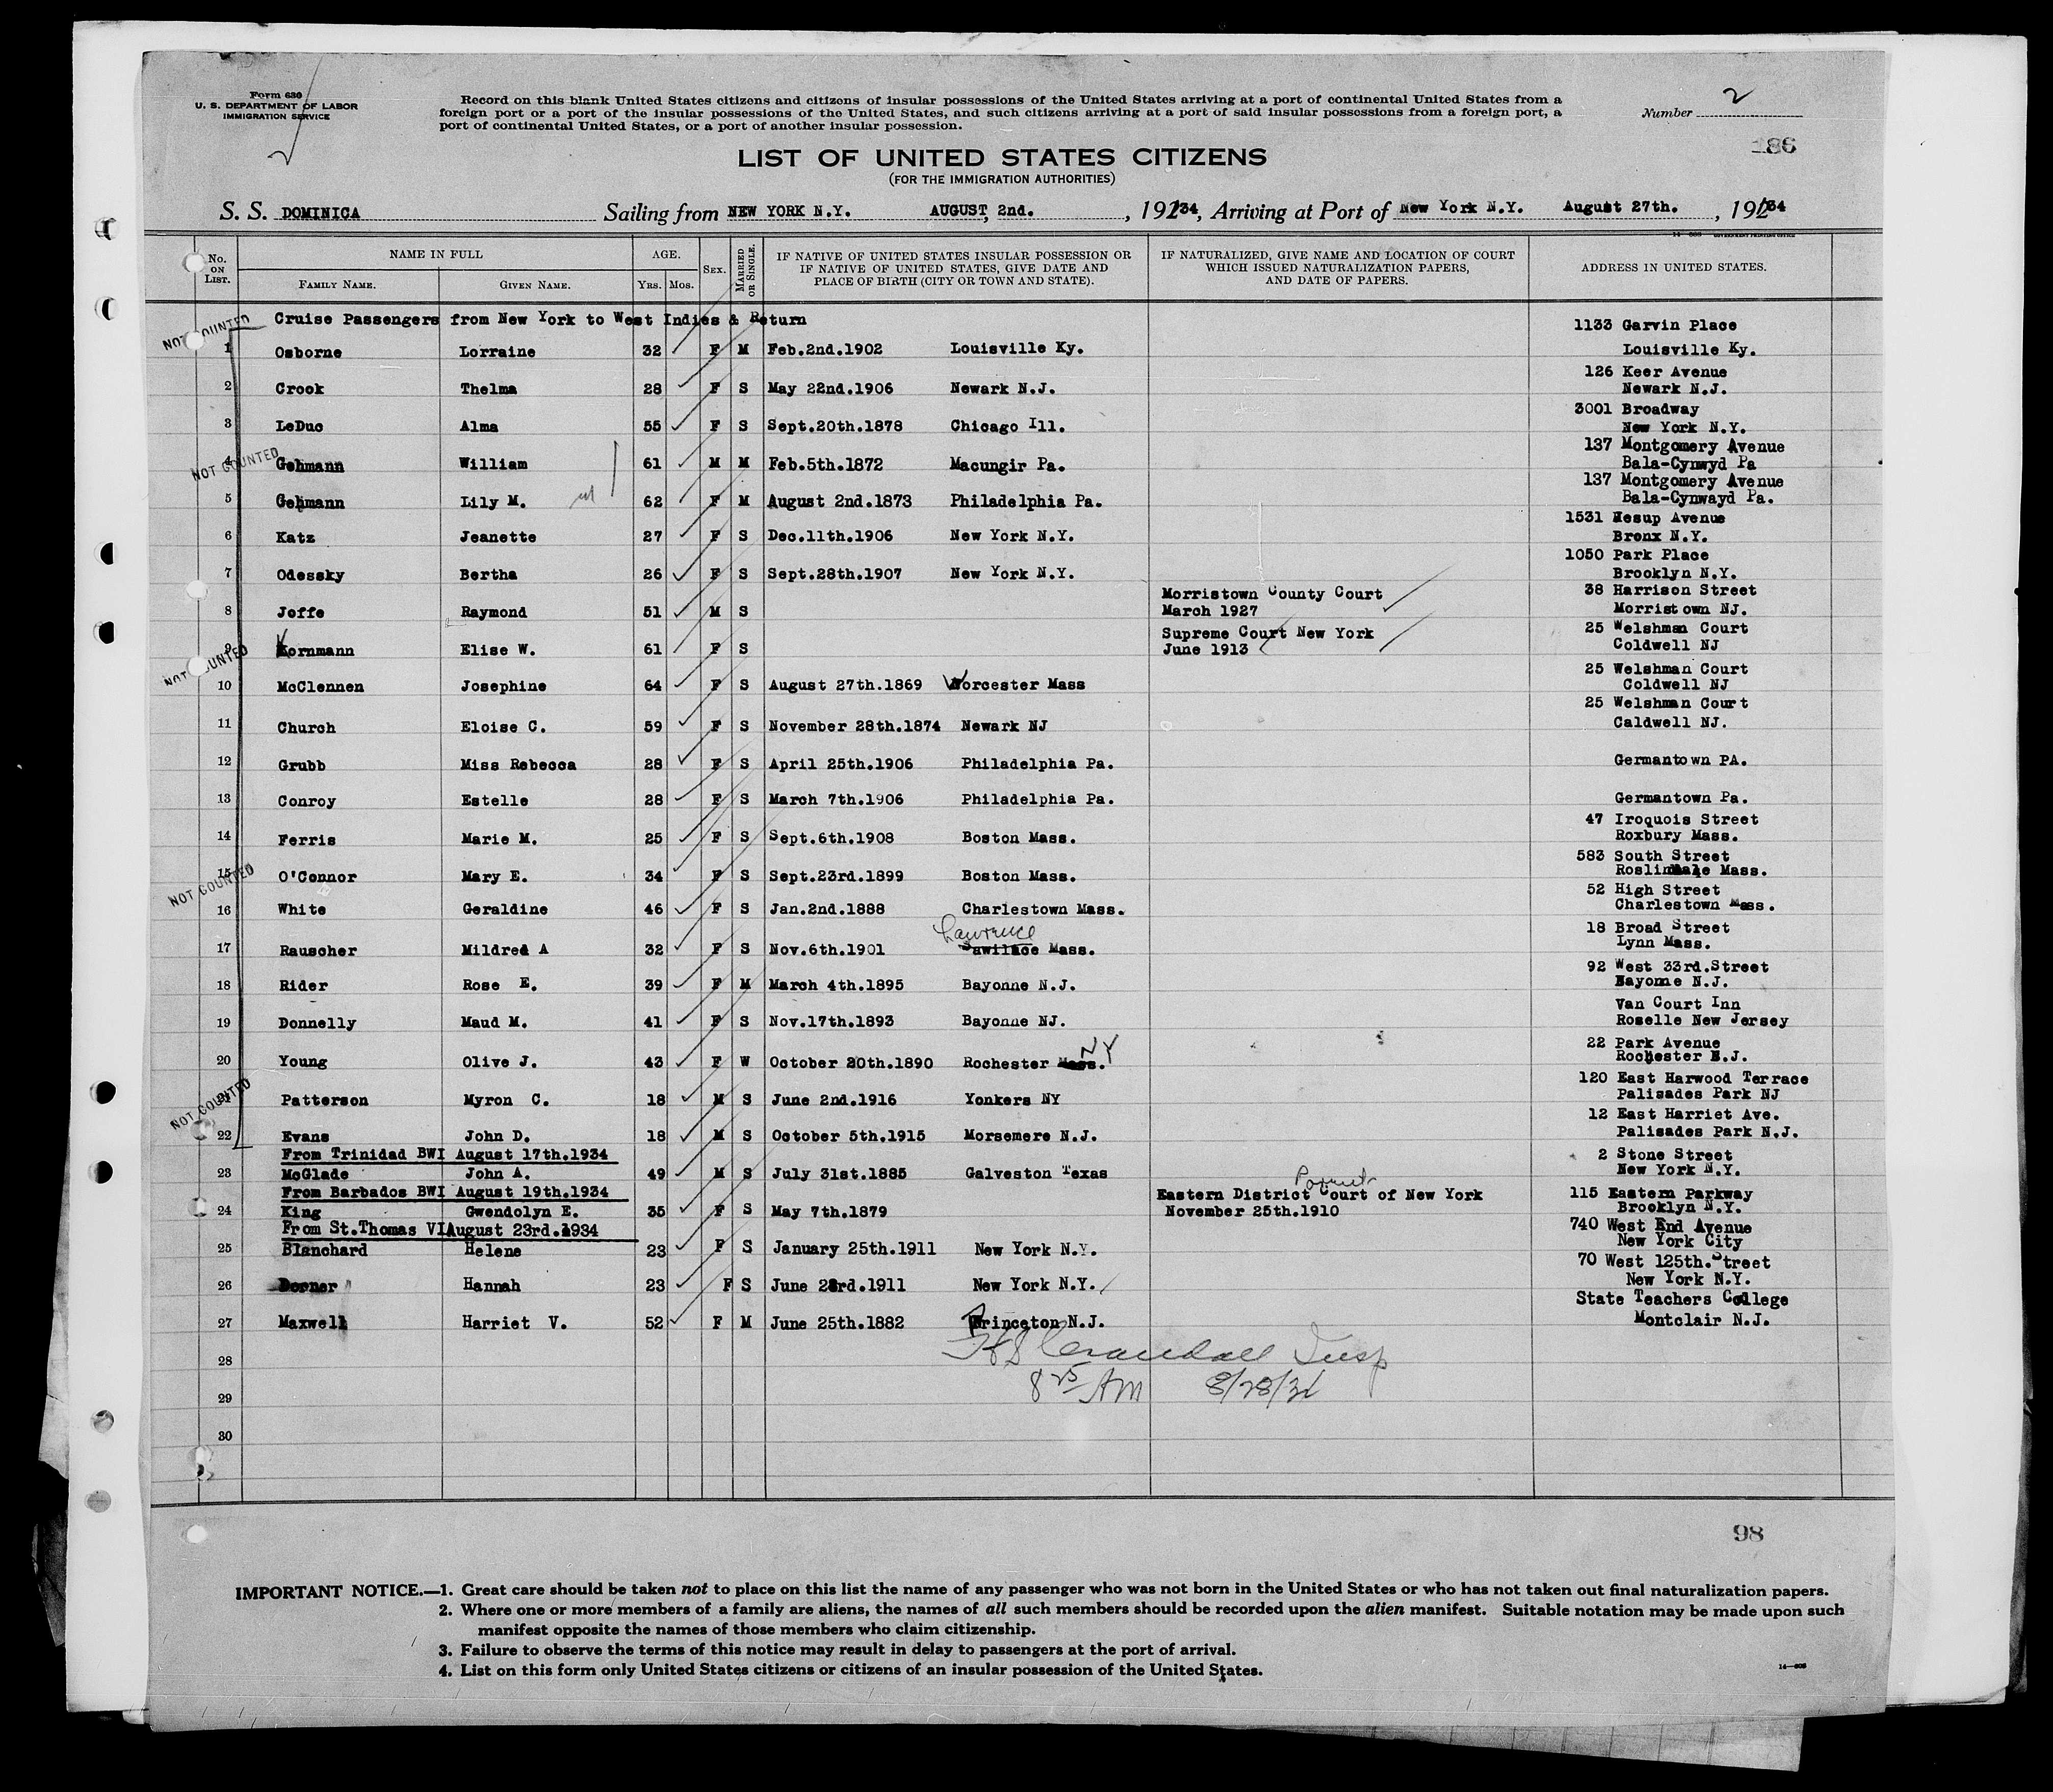 Form 630
U. S. DEPARTMENT OF LABOR
IMMIGRATION SERVICE
Record on this blank United States citizens and citizens of insular possessions of the United States arriving at a port of continental United States from a
foreign port or a port of the insular possessions of the United States, and such citizens arriving at a port of said insular possessions from a foreign port, a
port of continental United States, or a port of another insular possession.
Number 2
186
LIST OF UNITED STATES CITIZENS
(FOR THE IMMIGRATION AUTHORITIES)
S. S. DOMINICA Sailing from NEW YORK N.Y. AUGUST, 2nd. , 1934, Arriving at Port of New York N.Y. August 27th. , 1934
No. on List. NAME IN FULL AGE. Sex. Married or Single. IF NATIVE OF UNITED STATES INSULAR POSSESSION OR IF NATIVE OF UNITED STATES, GIVE DATE AND PLACE OF BIRTH (CITY OR TOWN AND STATE). IF NATURALIZED, GIVE NAME AND LOCATION OF COURT WHICH ISSUED NATURALIZATION PAPERS, AND DATE OF PAPERS. ADDRESS IN UNITED STATES.
Family Name. Given Name. Yrs. Mos.
NOT COUNTED
Cruise Passengers from New York to West Indies & Return
1 Osborne Lorraine 32 F M Feb.2nd.1902 Louisville Ky. 1133 Garvin Place Louisville Ky.
2 Crook Thelma 28 F S May 22nd.1906 Newark N.J. 126 Keer Avenue Newark N.J.
3 LeDuc Alma 55 F S Sept.20th.1878 Chicago Ill. 3001 Broadway New York N.Y.
NOT COUNTED
4 Gehmann William 61 M M Feb.5th.1872 Macungir Pa. 137 Montgomery Avenue Bala-Cynwyd Pa
5 Gehmann Lily M. 62 F M August 2nd.1873 Philadelphia Pa. 137 Montgomery Avenue Bala-Cynwayd Pa.
6 Katz Jeanette 27 F S Dec.11th.1906 New York N.Y. 1531 Hesup Avenue Bronx N.Y.
7 Odessky Bertha 26 F S Sept.28th.1907 New York N.Y. 1050 Park Place Brooklyn N.Y.
8 Joffe Raymond 51 M S Morristown County Court March 1927 38 Harrison Street Morristown NJ.
9 Kornmann Elise W. 61 F S Supreme Court New York June 1913 25 Welshman Court Coldwell NJ
NOT COUNTED
10 McClennen Josephine 64 F S August 27th.1869 Worcester Mass 25 Welshman Court Coldwell NJ
11 Church Eloise C. 59 F S November 28th.1874 Newark NJ 25 Welshman Court Caldwell NJ.
12 Grubb Miss Rebecca 28 F S April 25th.1906 Philadelphia Pa. Germantown PA.
13 Conroy Estelle 28 F S March 7th.1906 Philadelphia Pa. Germantown Pa.
14 Ferris Marie M. 25 F S Sept.6th.1908 Boston Mass. 47 Iroquois Street Roxbury Mass.
15 O'Connor Mary E. 34 F S Sept.23rd.1899 Boston Mass. 583 South Street Mass.
NOT COUNTED
16 White Geraldine 46 F S Jan.2nd.1888 Charlestown Mass. 52 High Street Charlestown Mass.
Lawrence
17 Rauscher Mildred A 32 F S Nov.6th.1901 Mass. 18 Broad Street Lynn Mass.
18 Rider Rose E. 39 F M March 4th.1895 Bayonne N.J. 92 West 33rd.Street Bayonne N.J.
19 Donnelly Maud M. 41 F S Nov.17th.1893 Bayonne NJ. Van Court Inn Roselle New Jersey
20 Young Olive J. 43 F W October 20th.1890 Rochester Mass. NY 22 Park Avenue Rochester N.J.
21 Patterson Myron C. 18 M S June 2nd.1916 Yonkers NY 120 East Harwood Terrace Palisades Park NJ
NOT COUNTED
22 Evans John D. 18 M S October 5th.1915 Morsemere N.J. 12 East Harriet Ave. Palisades Park N.J.
From Trinidad BWI August 17th.1934
23 McGlade John A. 49 M S July 31st.1885 Galveston Texas 2 Stone Street New York N.Y.
From Barbados BWI August 19th.1934
24 King Gwendolyn E. 35 F S May 7th.1879 Eastern District Court of New York November 25th.1910 115 Eastern Parkway Brooklyn N.Y.
From St.Thomas VI August 23rd.1934
25 Blanchard Helene 23 F S January 25th.1911 New York N.Y. 740 West End Avenue New York City
26 Dorner Hannah 23 F S June 23rd.1911 New York N.Y. 70 West 125th.Street New York N.Y.
27 Maxwell Harriet V. 52 F M June 25th.1882 Princeton N.J. State Teachers College Montclair N.J.
28 Crandall Insp
29 8 25 AM 8/28/34
30
98
IMPORTANT NOTICE.—1. Great care should be taken not to place on this list the name of any passenger who was not born in the United States or who has not taken out final naturalization papers.
2. Where one or more members of a family are aliens, the names of all such members should be recorded upon the alien manifest. Suitable notation may be made upon such
manifest opposite the names of those members who claim citizenship.
3. Failure to observe the terms of this notice may result in delay to passengers at the port of arrival.
4. List on this form only United States citizens or citizens of an insular possession of the United States.